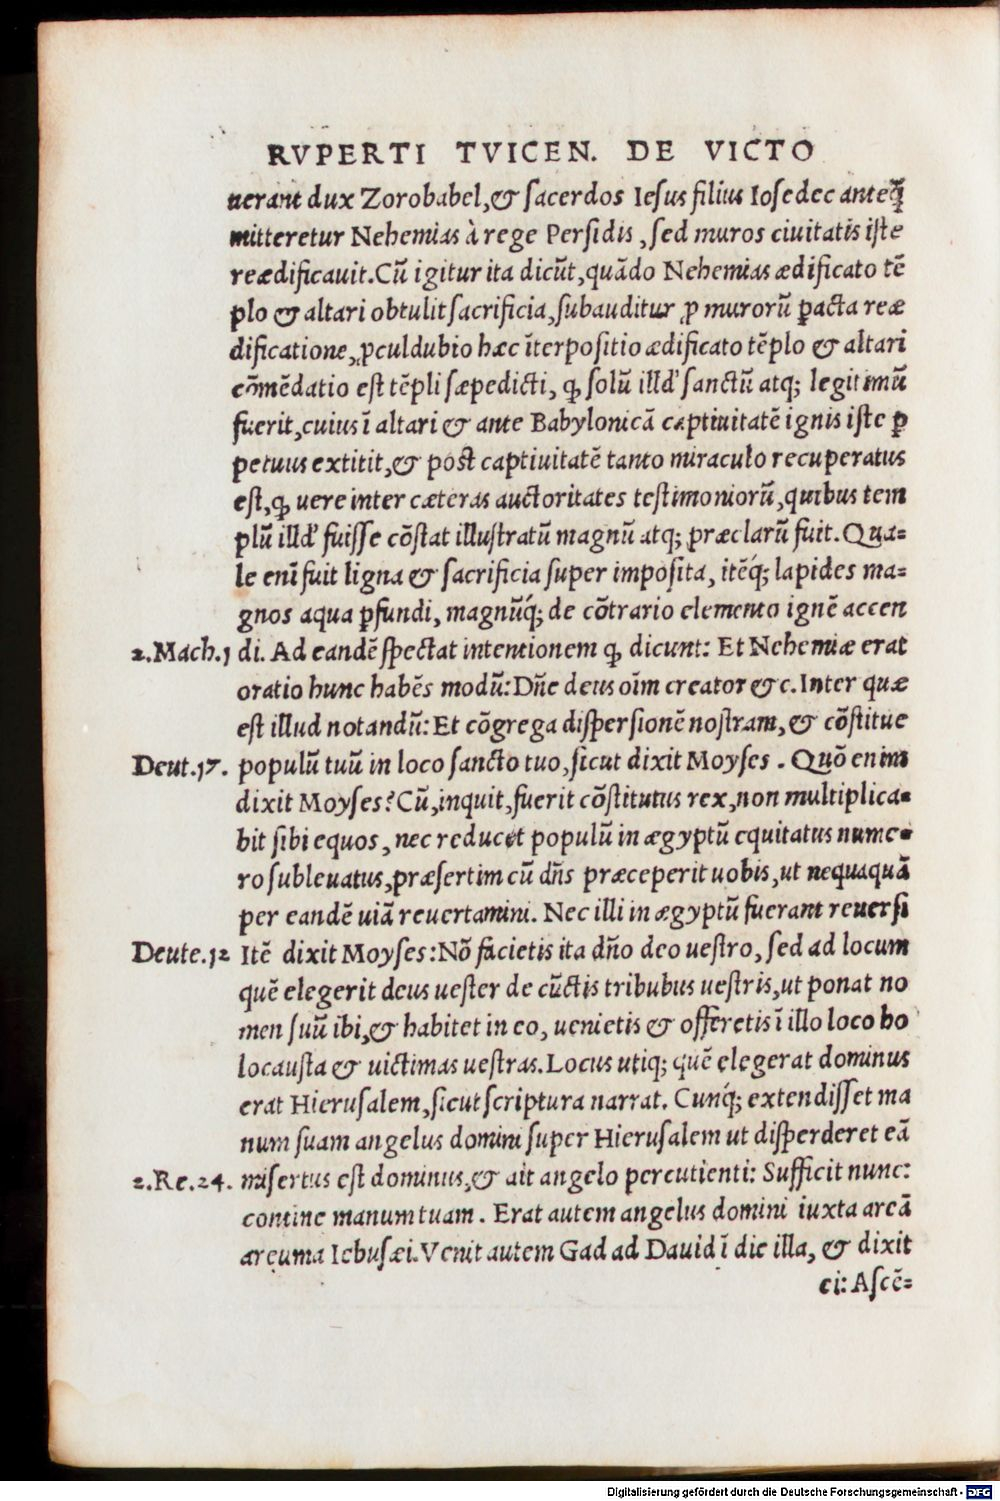 RVPERTI TVICEN. DE VICTO
uerant dux Zorobabel,& sacerdos Iesus filius Iosedec anteq̃
mitteretur Nehemias à rege Persidis, sed muros ciuitatis iste
reædificauit. Cũ igitur ita dicũt, quãdo Nehemias ædificato tẽ
plo & altari obtulit sacrificia, subauditur ꝓ murorũ ꝑacta reæ
dificatione, ꝓculdubio hæc ĩterpositio ædificato tẽplo & altari
cõmẽdatio est tẽpli sæpedicti, ꝙ solũ illd' sanctũ atq; legitimũ
fuerit, cuius ĩ altari & ante Babylonicã captiuitatẽ ignis iste ꝑ
petuus extitit,& post captiuitatẽ tanto miraculo recuperatus
est, ꝙ uere inter cæteras auctoritates testimoniorũ, quibus tem
plũ illd' fuisse cõstat illustratũ magnũ atq; præclarũ fuit. Qua=
le enĩ fuit ligna & sacrificia super imposita, itẽq́; lapides ma=
gnos aqua ꝑfundi, magnũq́; de cõtrario elemento ignẽ accen
2.Mach.1 di. Ad eandẽ spectat intentionem ꝙ dicunt: Et Nehemiæ erat
oratio hunc habẽs modũ: Dñe deus oĩm creator &c. Inter quæ
est illud notandũ: Et cõgrega dispersionẽ nostram, & cõstitue
Deut.17. populũ tuũ in loco sancto tuo, sicut dixit Moyses. Quõ enim
dixit Moyses? Cũ, inquit, fuerit cõstitutus rex, non multiplica=
bit sibi equos, nec reducet populũ in ægyptũ equitatus nume=
ro subleuatus, præsertim cũ dñs præceperit uobis, ut nequaquã
per eandẽ uiã reuertamini. Nec illi in ægyptũ fuerant reuersi
Deute.12 Itẽ dixit Moyses: Nõ facietis ita dño deo uestro, sed ad locum
quẽ elegerit deus uester de cũctis tribubus uestris, ut ponat no
men suũ ibi,& habitet in eo, uenietis & offeretis ĩ illo loco ho
locausta & uictimas uestras. Locus utiq; quẽ elegerat dominus
erat Hierusalem, sicut scriptura narrat. Cunq́; extendisset ma
num suam angelus domini super Hierusalem ut disperderet eã
2.Re.24. misertus est dominus,& ait angelo percutienti: Sufficit nunc:
contine manum tuam. Erat autem angelus domini iuxta areã
areuma Iebusæi. Venit autem Gad ad Dauid ĩ die illa, & dixit
ei: Ascẽ=
Digitalisierung gefördert durch die Deutsche Forschungsgemeinschaft - DFG